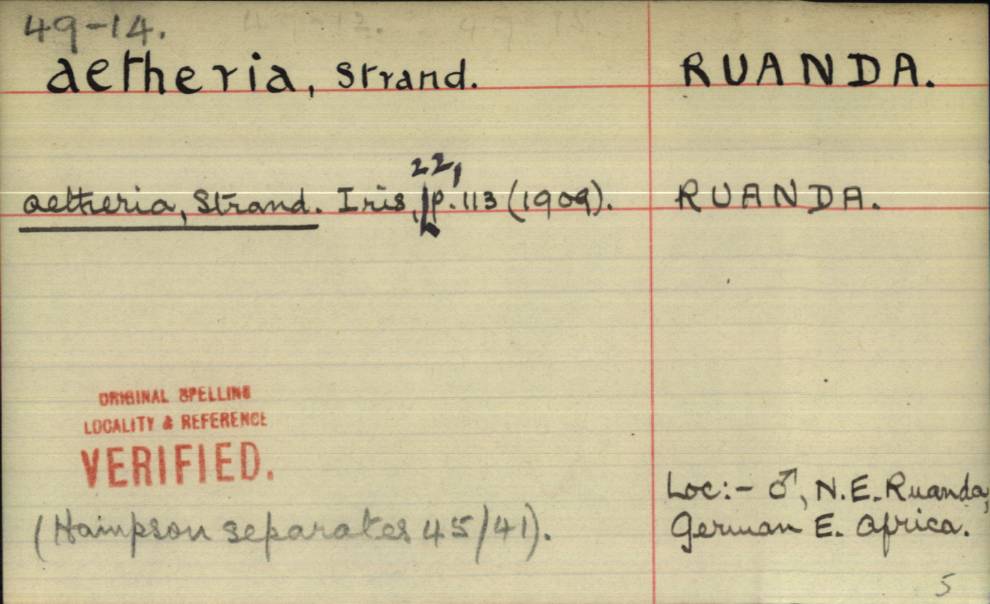 49-14.
aetheria, Strand. RUANDA.
22,
aetheria, Strand. Iris, p. 113 (1909). RUANDA.
ORIGINAL SPELLING
LOCALITY & REFERENCE
VERIFIED.
Loc:- ♂, N.E. Ruanda,
(Hampson separates 45/41).
German E. Africa.
5